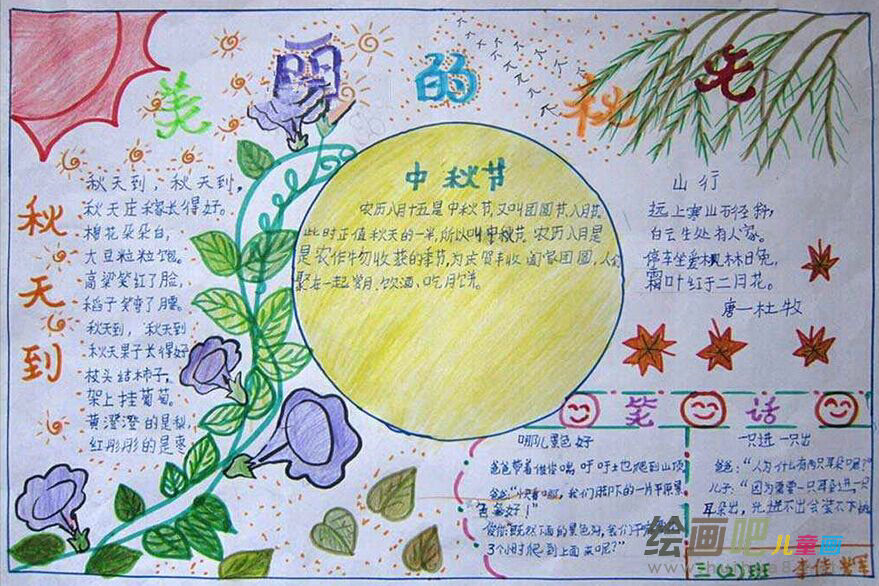 美丽的秋天
秋天到
秋天到，秋天到，
秋天庄稼长得好。
棉花朵朵白，
大豆粒粒饱。
高粱笑红了脸，
稻子笑弯了腰。
秋天到，秋天到
秋天果子长得好
枝头结柿子，
架上挂葡萄。
黄澄澄的是梨，
红彤彤的是枣
中秋节
农历八月十五是中秋节，又叫团圆节，八月节
此时正值秋天的一半，所以叫中秋节。农历八月是
是农作物收获的季节，为庆贺丰收，阖家团圆，人们
聚在一起赏月、饮酒、吃月饼。
山行
远上寒山石径斜，
白云生处有人家。
停车坐爱枫林日免，
霜叶红于二月花。
唐一杜牧
笑话
哪儿景色好
爸爸带着俊俊喘吁吁土也爬到山顶
爸爸："快看哪，我们脚下的一片平原景
色多好！"
俊俊："既然下面的景色好，我们干
3个小时爬到上面来呢？"
一只进一只出
爸爸："人为什么有两只耳朵呢？"
儿子："因为需要一只耳朵进一只
耳朵出，光进不出会装不下
三(2)班
李佳辉
绘画吧儿童画